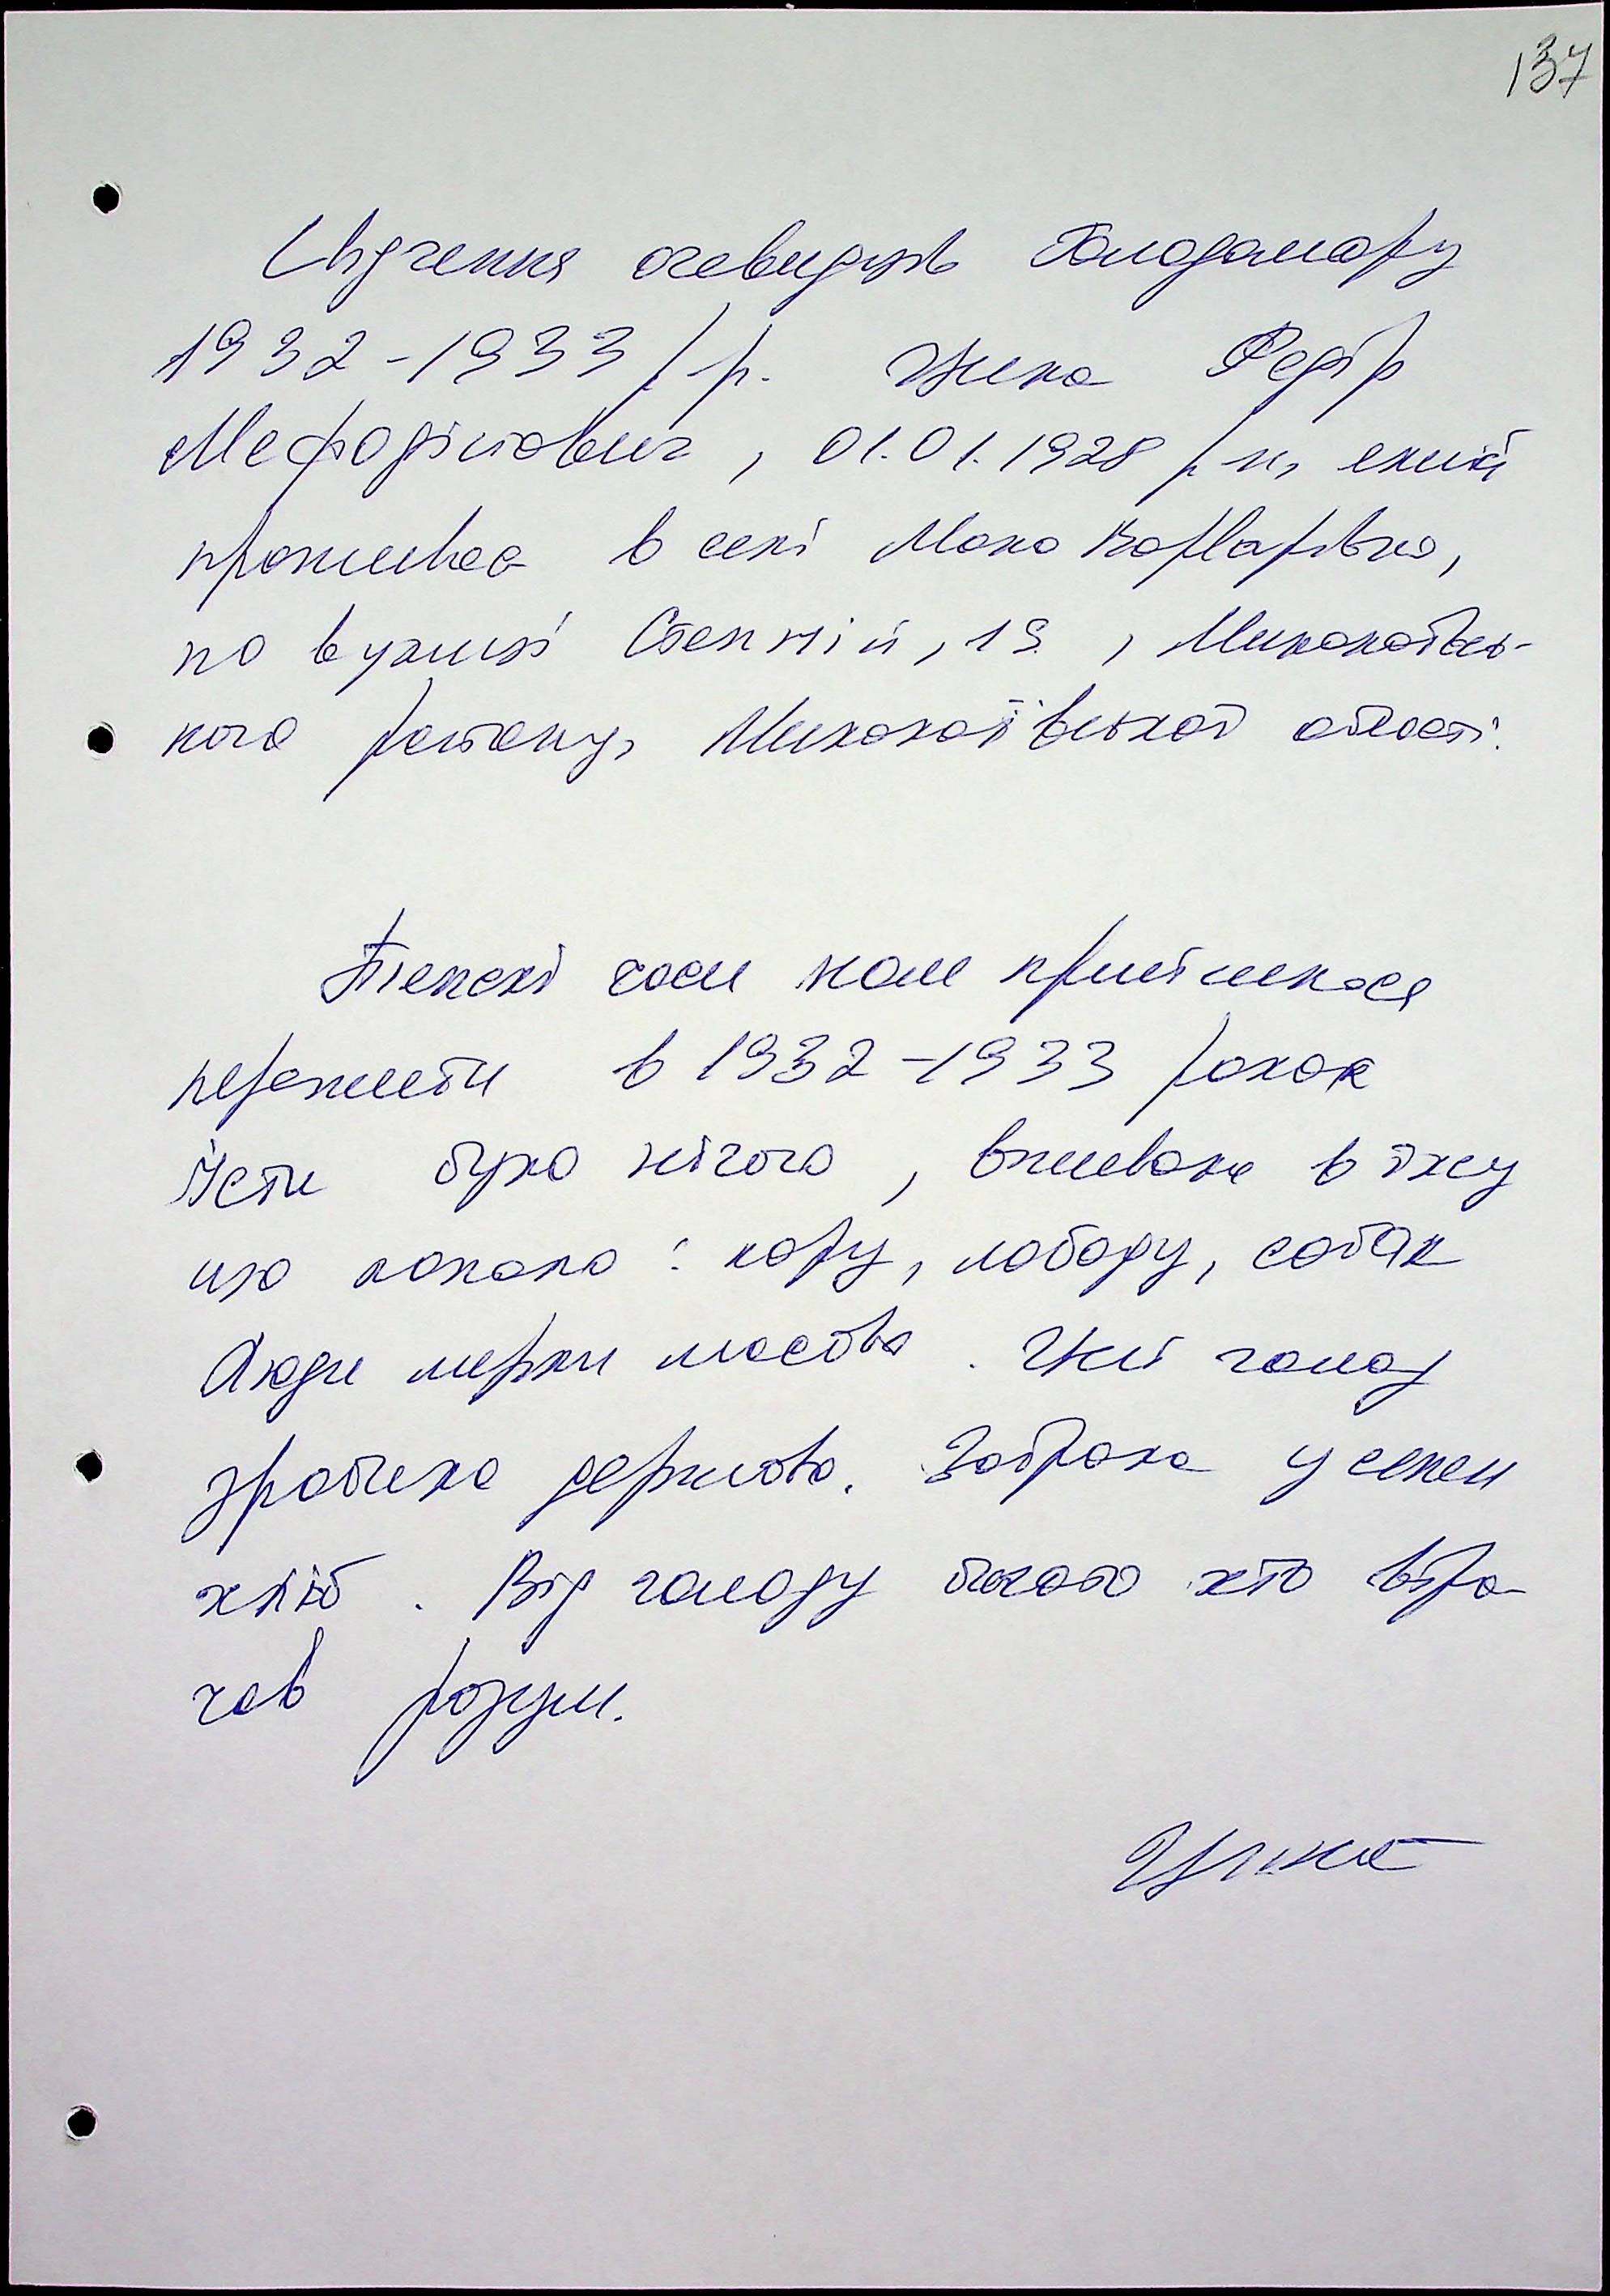 137
Свідчення очевидців Голодомору
1932-1933 р.р. Цика Федір
Мефодійович, 01.01.1928 р.н, який
проживає в селі Мала Варварівка,
по вулиці Степній, 19, Миколаївсь-
кого району, Миколаївської області.
Пекельні часи нам прийшлося
пережити в 1932-1933 роках
Їсти було нічого, вживали в їжу
що попало: кору, лободу, собак
Люди мерли масово. Цей голод
зробила держава. Забрала у селян
хліб. Від голоду багато хто втра-
чав розум.
Цика